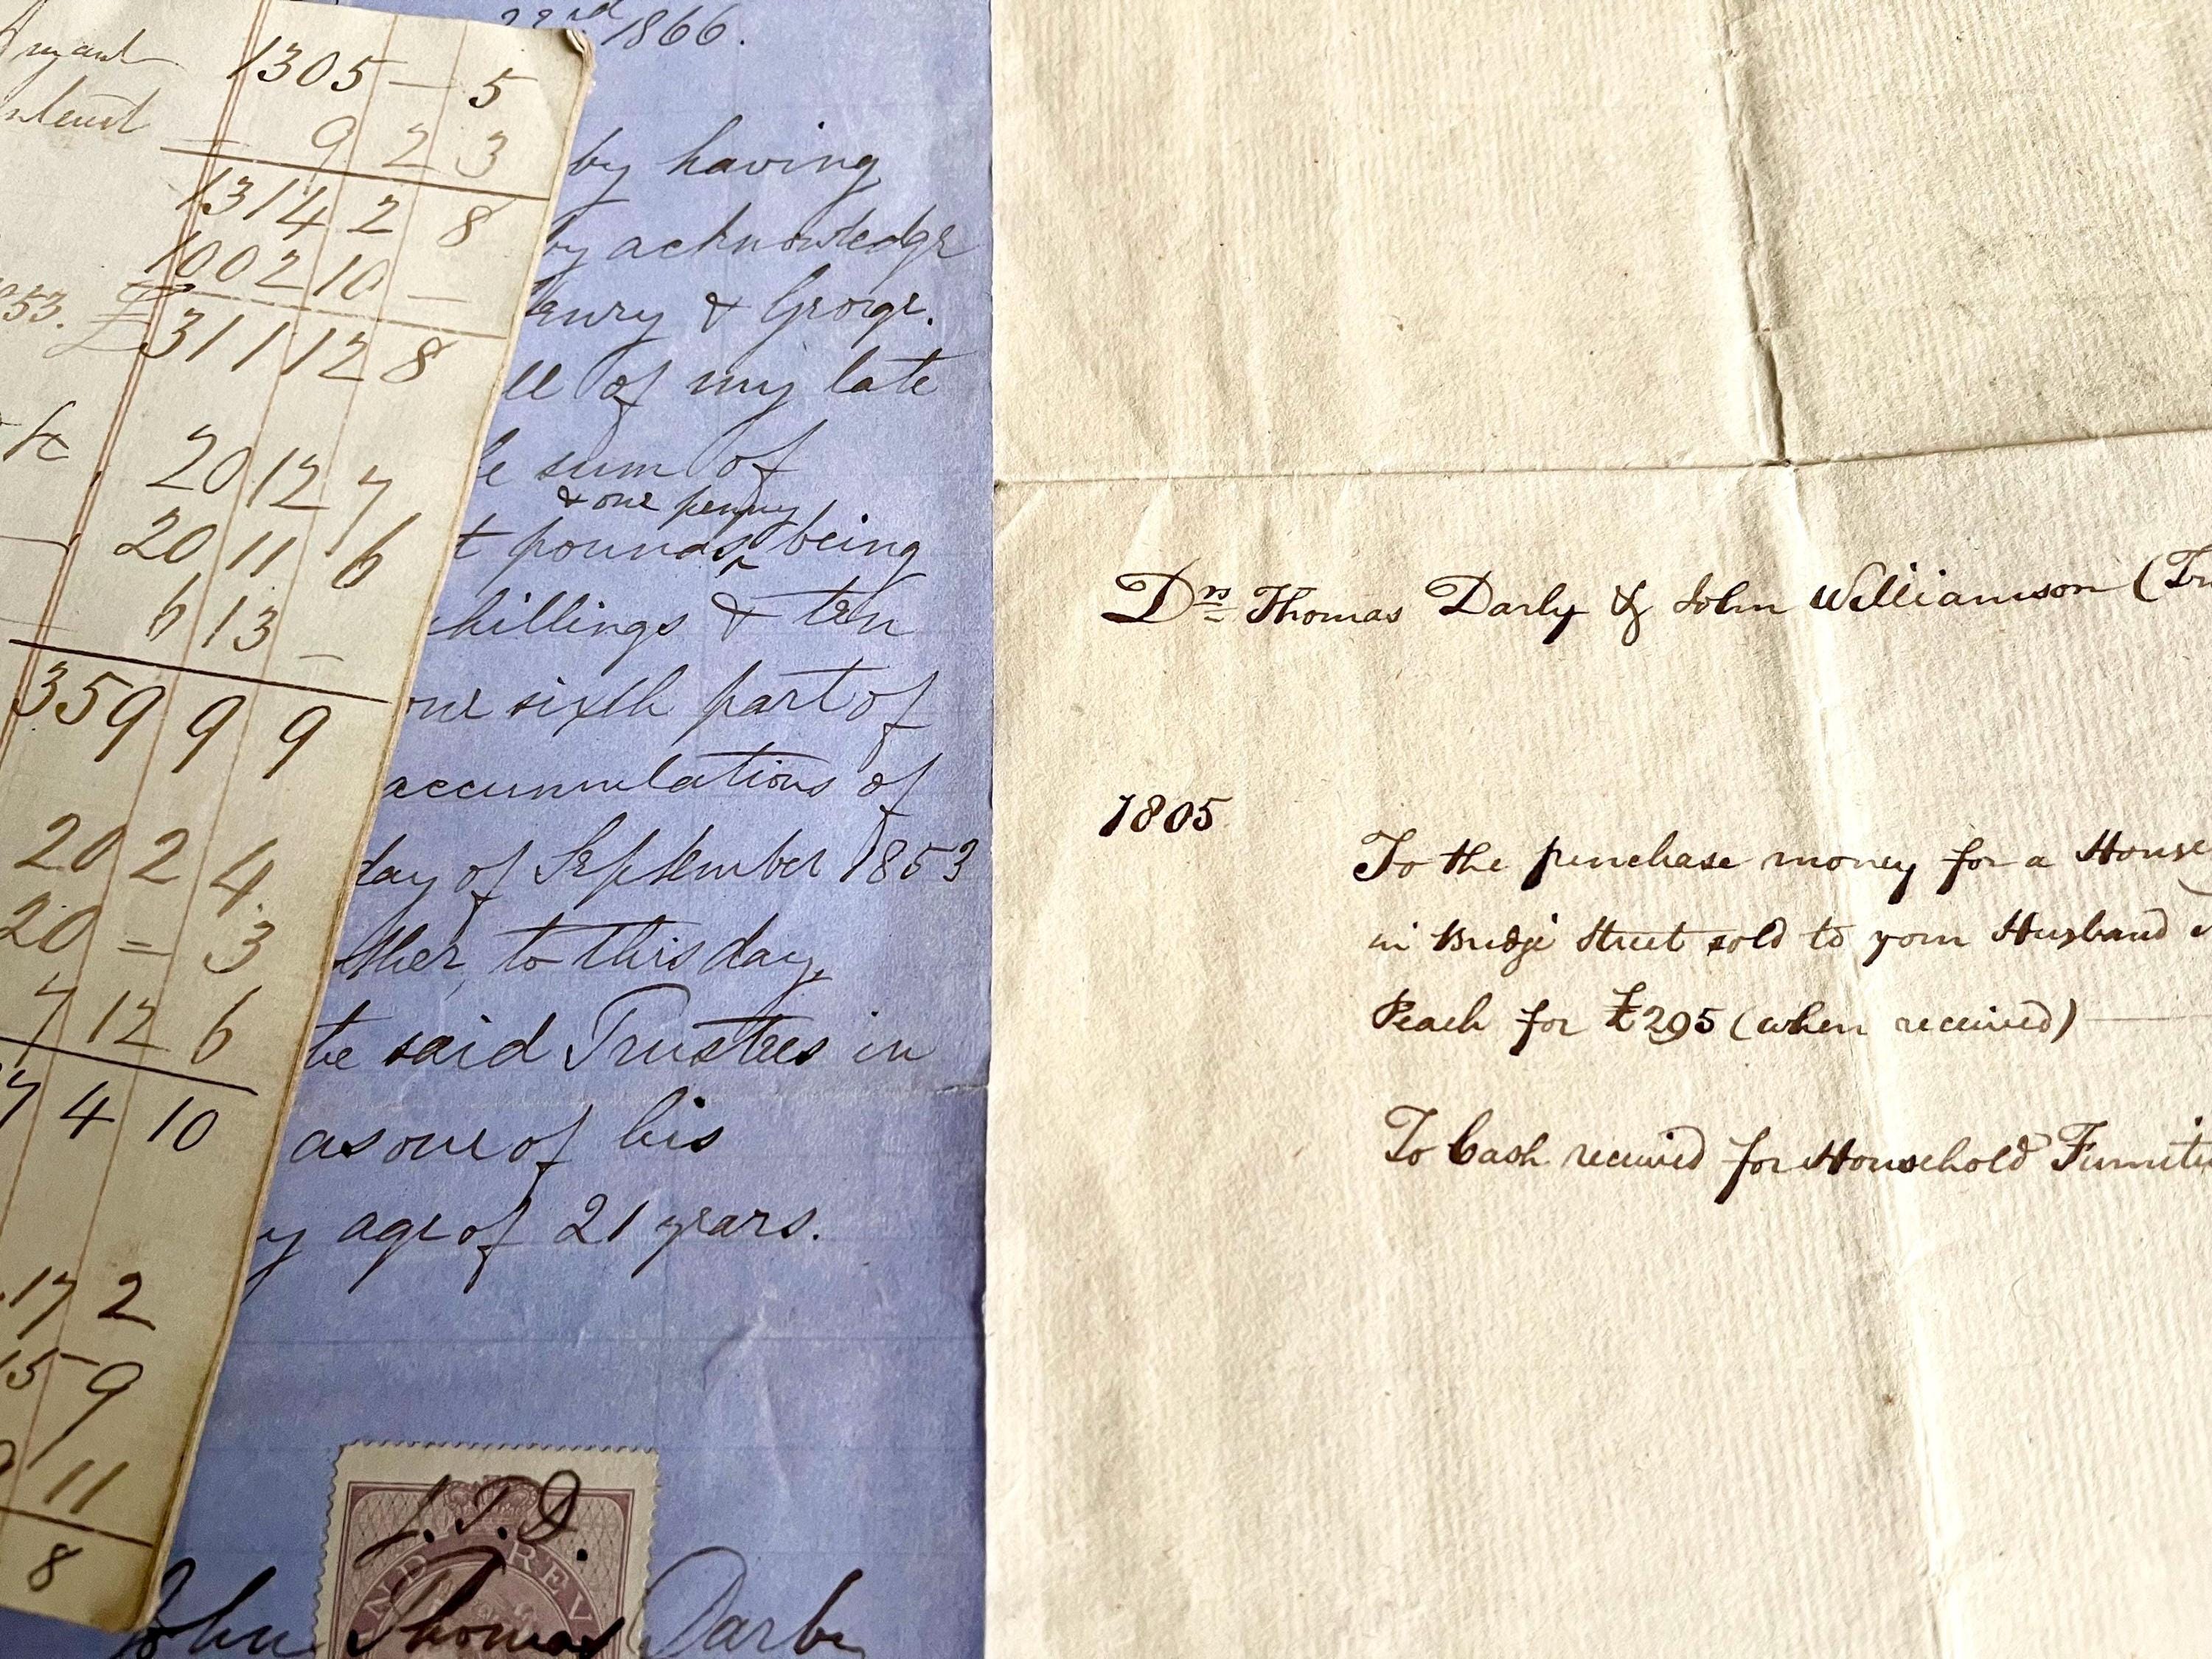 1305 — 5
9 2 3
1314 2 8
1002 10 —
53. £311 12 8
20 12 7
20 11 6
6 13 —
359 9 9
20 2 4
20 = 3
7 12 6
7 4 10
17 2
15 9
11
8
22nd 1866.
by having
by acknowledge
enry & George.
ll of my late
e sum of
& one penny
t pounds ^ being
hillings & ten
one sixth part of
accumulations of
day of September 1853
ther, to this day,
he said Trustees in
as one of his
y age of 21 years.
J.T.D.
ND REV
John Thomas Darby
Drs Thomas Darly & John Williamson (Tr
1805
To the purchase money for a House
in Bridge Street sold to your Husband
Peach for £295 (when received)
To Cash received for Household Furnitu